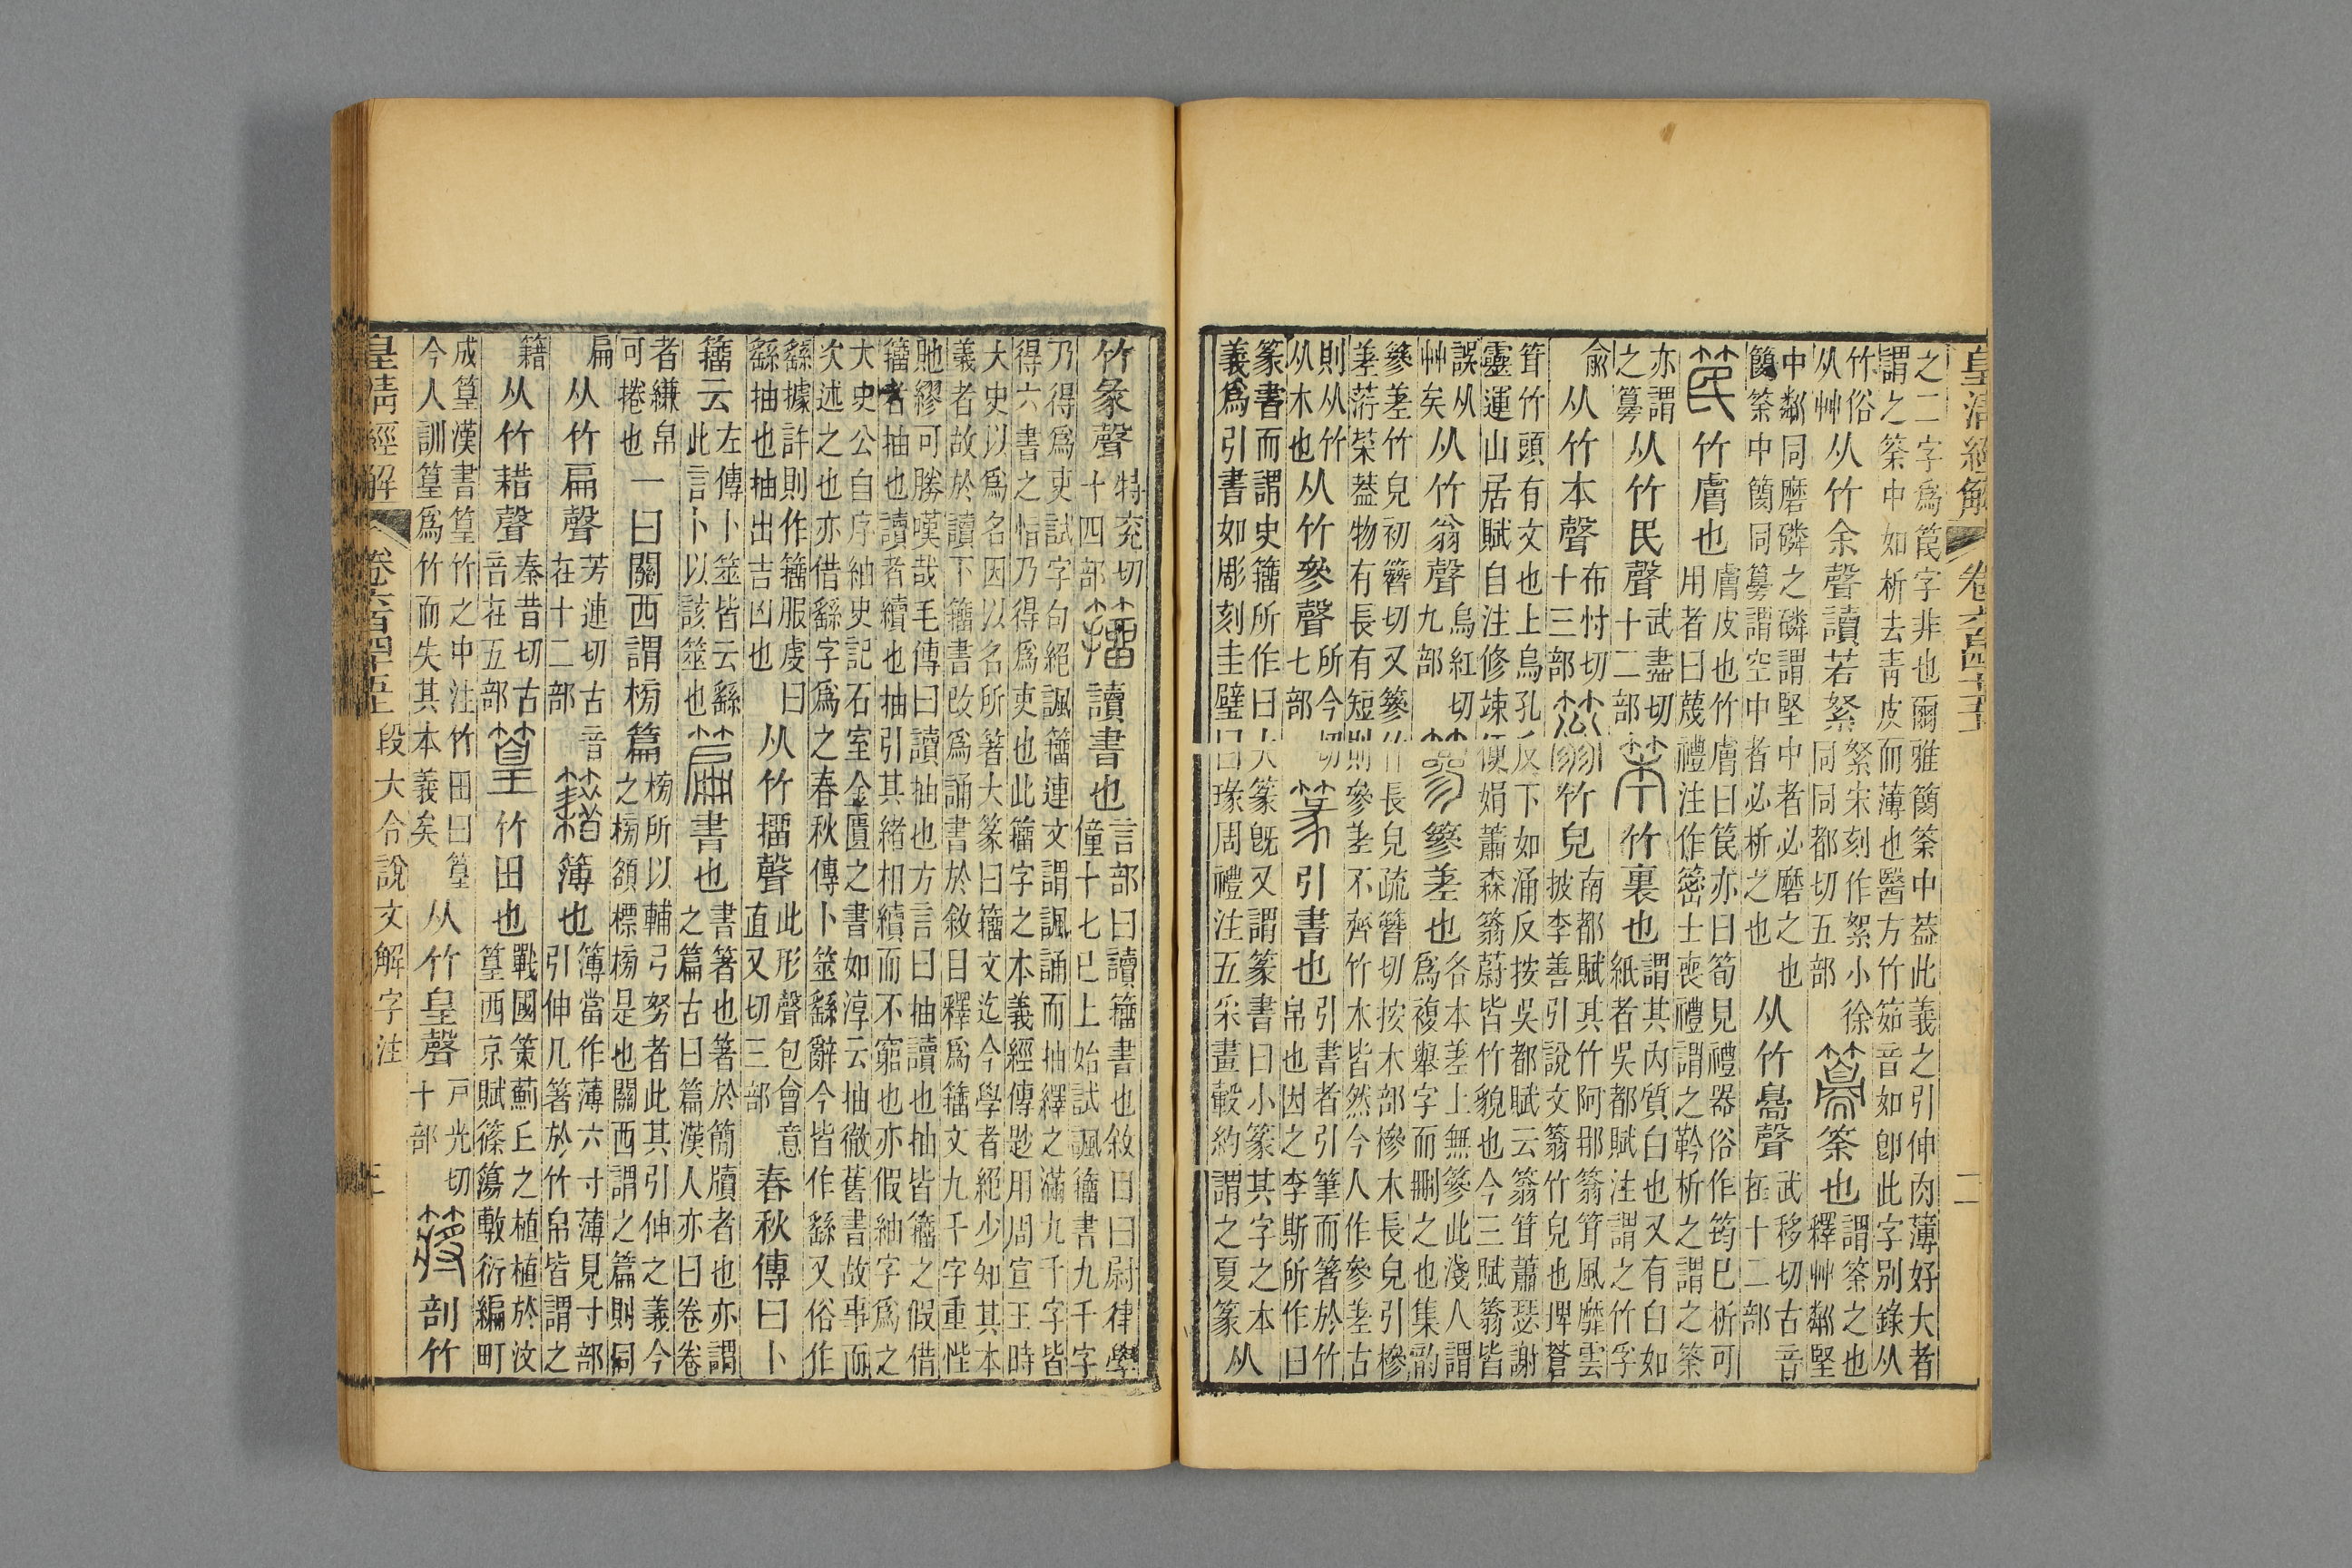 皇清經解 卷六百四十五 二
之二字爲笢字非也爾雅簡筡中葢此義之引伸肉薄好大者
謂之筡中如析去青皮而薄也醫方竹茹音如卽此字別錄从
竹俗从艸 从竹余聲讀若絮 絮宋刻作絮小徐同同都切五部 筡也 謂筡之也釋艸鄰堅
中鄰同磨磷之磷謂堅中者必磨之也
簡筡中簡同䉲謂空中者必析之也 从竹臱聲 武移切古音在十二部
笢 竹膚也 膚皮也竹膚曰笢亦曰筍見禮器俗作筠已析可用者曰蔑禮注作䈼士喪禮謂之靲析之謂之筡
亦謂之䉲 从竹民聲 武盡切十二部 笨 竹裏也 謂其內質白也又有白如紙者吳都賦注謂之竹孚
兪 从竹本聲 布忖切十三部 篸 竹皃 南都賦其竹阿那蓊茸風靡雲披李善引說文蓊竹皃也埤蒼
茸竹頭有文也上烏孔反下如涌反按吳都賦云蓊茸蕭瑟謝
靈運山居賦自注修竦便娟蕭森蓊蔚皆竹貌也今三賦蓊皆
誤从艸矣 从竹翁聲 烏紅切九部 篸 篸差也 各本差上無篸此淺人謂爲複舉字而刪之也集韵
篸差竹皃初簪切又篸竹長皃疏簪切按木部槮木長皃引槮
差荇菜葢物有長有短則參差不齊竹木皆然今人作參差古
則从竹从木也 从竹參聲 所今切七部 篆 引書也 引書者引筆而箸於竹帛也因之李斯所作曰
篆書而謂史籒所作曰大篆旣又謂篆書曰小篆其字之本
義爲引書如彫刻圭璧曰瑑周禮注五采畫轂約謂之夏篆 从
竹彖聲 持兖切十四部 籒 讀書也 言部曰讀籒書也敘曰尉律學僮十七已上始試諷籒書九千字
乃得爲吏試字句絕諷籒連文謂諷誦而抽繹之滿九千字皆
得六書之恉乃得爲吏也此籒字之本義經傳尟用周宣王時
大史以爲名因以名所著大篆曰籒文迄今學者絕少知其本
義者故於讀下籒書改爲誦書於敘目釋爲籒文九千字重悂
貤繆可勝嘆哉毛傳曰讀抽也方言曰抽讀也抽皆籒之假借
籒者抽也讀者續也抽引其緒相續而不窮也亦假紬字爲之
大史公自序紬史記石室金匱之書如淳云抽徹舊書故事而
次述之也亦借繇字爲之春秋傳卜筮繇辭今皆作繇又俗作
繇據許則作籒服虔曰繇抽也抽出吉凶也 从竹㩅聲 此形聲包會意直又切三部 春秋傳曰卜
籒云 左傳卜筮皆云繇此言卜以該筮也 篇 書也 書箸也箸於簡牘者也亦謂之篇古曰篇漢人亦曰卷卷
者縑帛可捲也 一曰關西謂榜篇 榜所以輔弓弩者此其引伸之義今之榜額標榜是也關西謂之篇則同
扁 从竹扁聲 芳連切古音在十二部 籍 簿也 簿當作薄六寸薄見寸部引伸凡箸於竹帛皆謂之
籍 从竹耤聲 秦昔切古音在五部 篁 竹田也 戰國策薊丘之植植於汶篁西京賦篠簜敷衍編町
成篁漢書篁竹之中注竹田曰篁今人訓篁爲竹而失其本義矣 从竹皇聲 戸光切十部 䉷 剖竹
皇清經解 卷六百四十五 段大令說文解字注 三